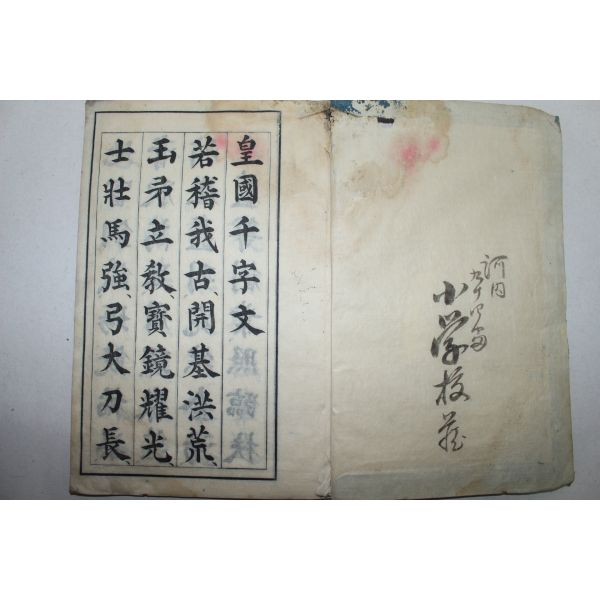 河内
九十四番
小学校蔵
皇國千字文
若稽我古、開基洪荒、
玉矛立教、寶鏡耀光、
士壯馬強、弓大刀長、